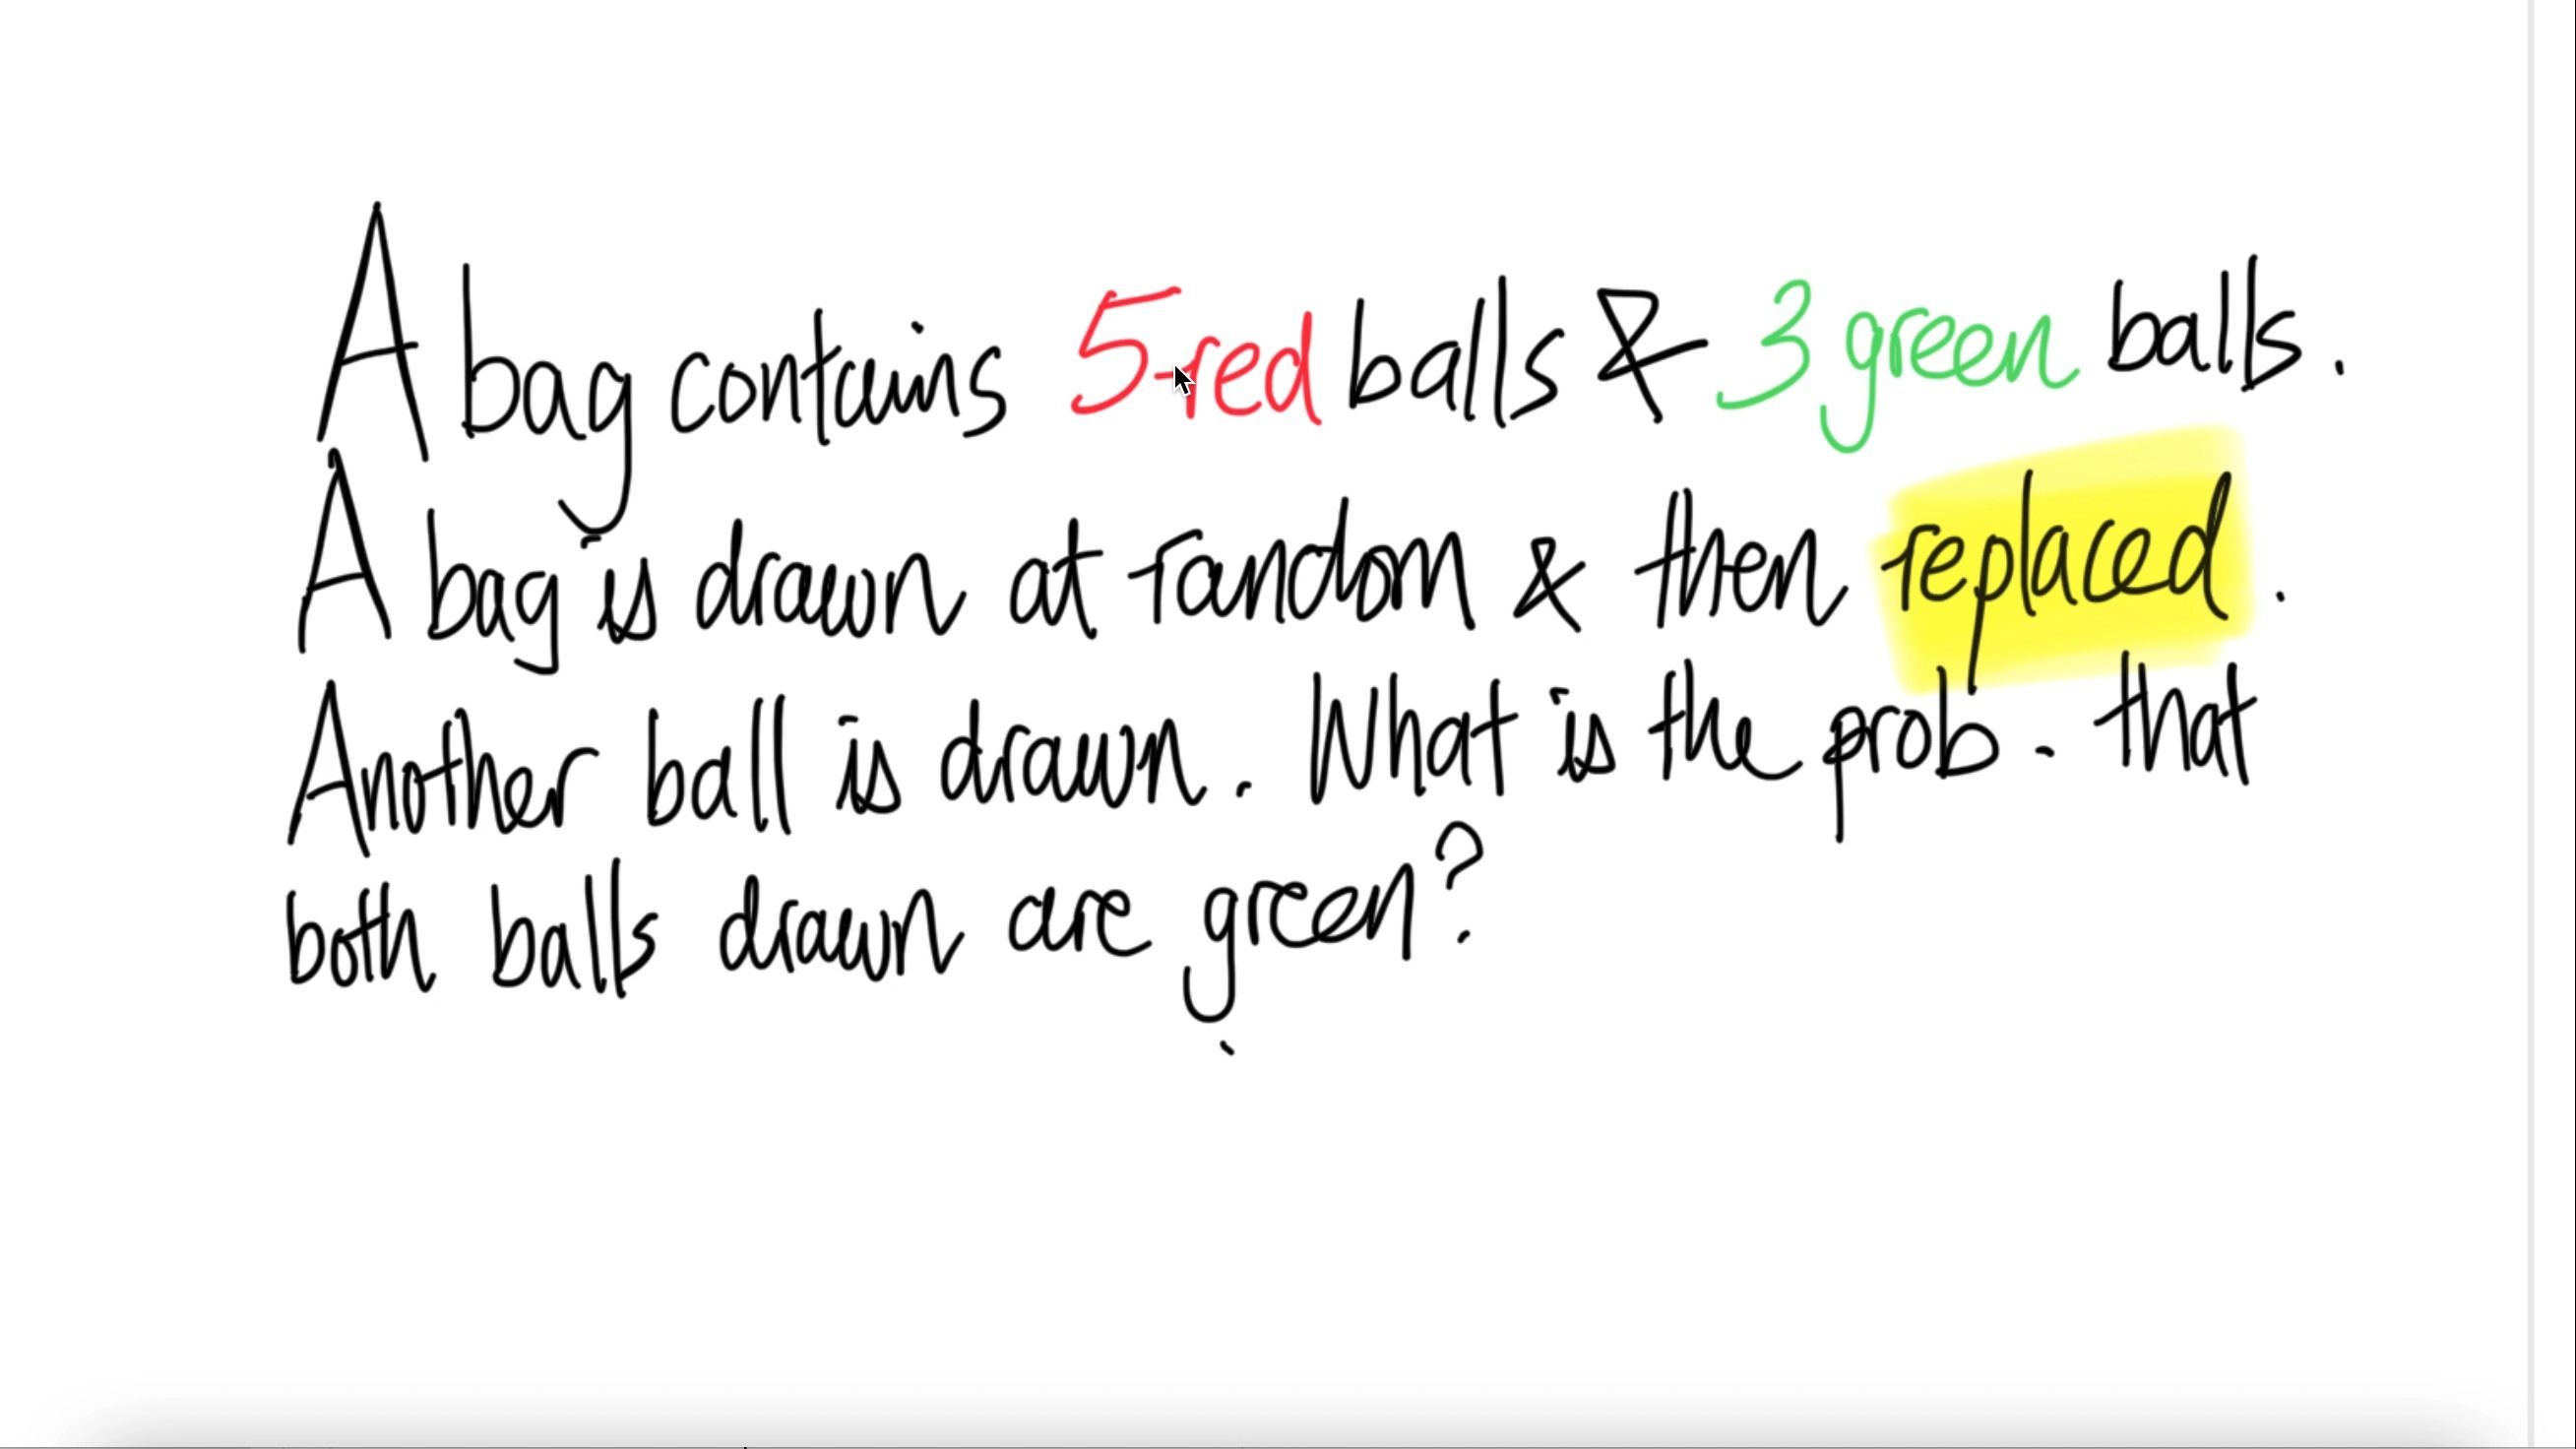 A bag contains 5 red balls & 3 green balls.
A bag is drawn at random & then replaced.
Another ball is drawn. What is the prob. that
both balls drawn are green?